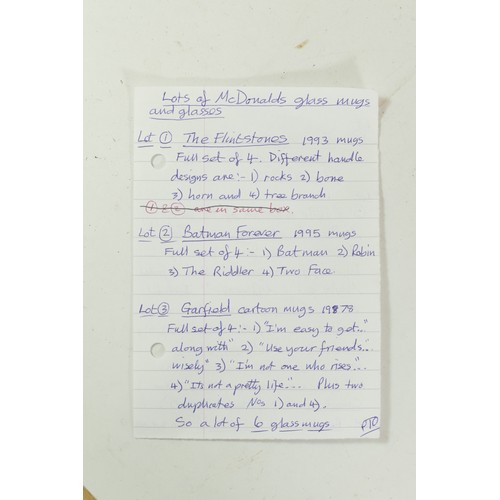 Lots of McDonalds glass mugs
and glasses
Lot ① The Flintstones 1993 mugs
Full set of 4. Different handle
designs are:- 1) rocks 2) bone
3) horn and 4) tree branch
① & ② are in same box.
Lot ② Batman Forever 1995 mugs
Full set of 4:- 1) Batman 2) Robin
3) The Riddler 4) Two Face
Lot ③ Garfield cartoon mugs
Full set of 4:- 1) "I'm easy to get..
along with" 2) "Use your friends..
wisely" 3) "I'm not one who rises"..
4) "It's not a pretty life"... Plus two
duplicates Nos 1) and 4).
So a lot of 6 glass mugs PTO